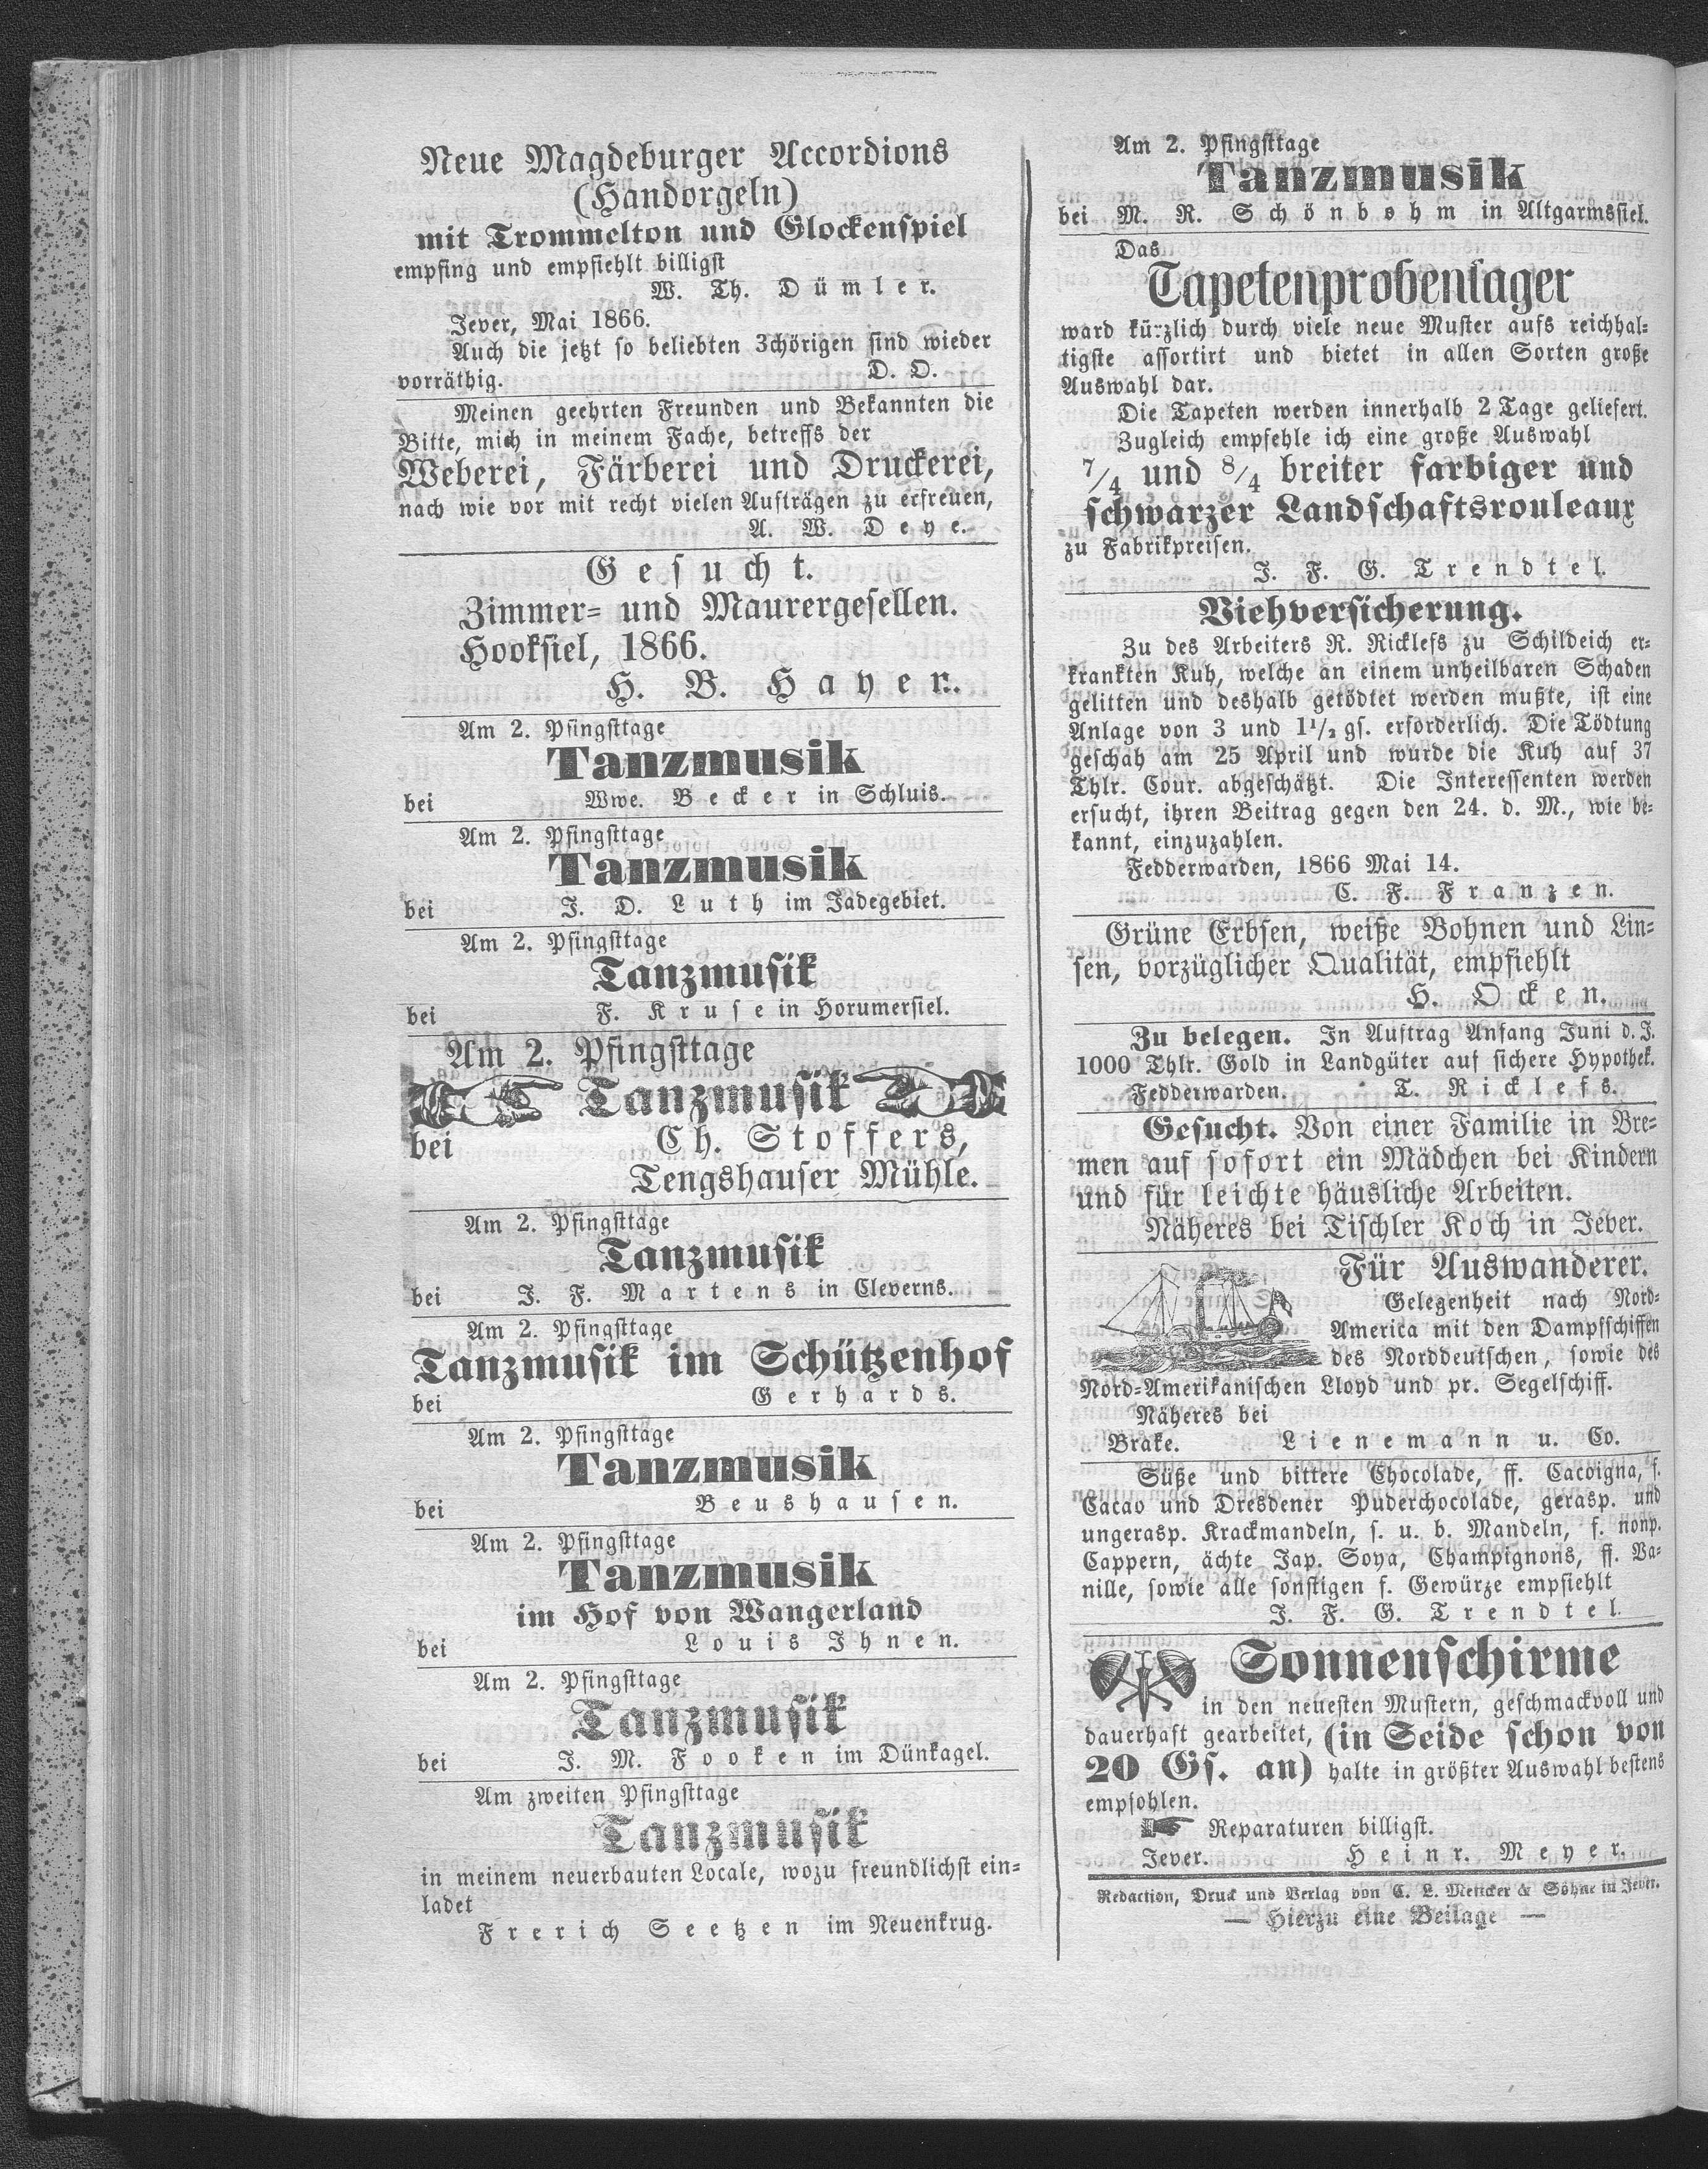 Neue Magdeburger Accordions
(Handorgeln)
mit Trommelton und Glockenspiel
empfing und empfiehlt billigst
W. Th. Dümler.
Jever, Mai 1866.
Auch die jetzt so beliebten 3chörigen sind wieder
vorräthig. D. O.
Meinen geehrten Freunden und Bekannten die
Bitte, mich in meinem Fache, betreffs der
Weberei, Färberei und Druckerei,
nach wie vor mit recht vielen Aufträgen zu erfreuen,
A. W. Deye.
Gesucht.
Zimmer- und Maurergesellen.
Hooksiel, 1866.
H. B. Hayer.
Am 2. Pfingsttage
Tanzmusik
bei Wwe. Becker in Schluis.
Am 2. Pfingsttage
Tanzmusik
bei J. D. Luth im Jadegebiet.
Am 2. Pfingsttage
Tanzmusik
bei F. Kruse in Horumersiel.
Am 2. Pfingsttage
Tanzmusik
bei Ch. Stoffers,
Tengshauser Mühle.
Am 2. Pfingsttage
Tanzmusik
bei J. F. Martens in Cleverns.
Am 2. Pfingsttage
Tanzmusik im Schützenhof
bei Gerhards.
Am 2. Pfingsttage
Tanzmusik
bei Beushausen.
Am 2. Pfingsttage
Tanzmusik
im Hof von Wangerland
bei Louis Ihnen.
Am 2. Pfingsttage
Tanzmusik
bei J. M. Fooken im Dünkagel.
Am zweiten Pfingsttage
Tanzmusik
in meinem neuerbauten Locale, wozu freundlichst ein-
ladet
Frerich Seetzen im Neuenkrug.
Am 2. Pfingsttage
Tanzmusik
bei M. R. Schönbohm in Altgarmssiel.
Das
Tapetenprobenlager
ward kürzlich durch viele neue Muster aufs reichhal-
tigste assortirt und bietet in allen Sorten große
Auswahl dar.
Die Tapeten werden innerhalb 2 Tage geliefert.
Zugleich empfehle ich eine große Auswahl
7/4 und 8/4 breiter farbiger und
schwarzer Landschaftsrouleaux
zu Fabrikpreisen.
J. F. G. Trendtel.
Viehversicherung.
Zu des Arbeiters R. Ricklefs zu Schildeich er-
krankten Kuh, welche an einem unheilbaren Schaden
gelitten und deshalb getödtet werden mußte, ist eine
Anlage von 3 und 1½ gs. erforderlich. Die Tödtung
geschah am 25 April und wurde die Kuh auf 37
Thlr. Cour. abgeschätzt. Die Interessenten werden
ersucht, ihren Beitrag gegen den 24. d. M., wie be-
kannt, einzuzahlen.
Fedderwarden, 1866 Mai 14.
C. F. Franzen.
Grüne Erbsen, weiße Bohnen und Lin-
sen, vorzüglicher Qualität, empfiehlt
H. Ocken.
Zu belegen. In Auftrag Anfang Juni d. J.
1000 Thlr. Gold in Landgüter auf sichere Hypothek.
Fedderwarden. T. Ricklefs.
Gesucht. Von einer Familie in Bre-
men auf sofort ein Mädchen bei Kindern
und für leichte häusliche Arbeiten.
Näheres bei Tischler Koch in Jever.
Für Auswanderer.
Gelegenheit nach Nord-
America mit den Dampfschiffen
des Norddeutschen, sowie des
Nord-Amerikanischen Lloyd und pr. Segelschiff.
Näheres bei
Brake. Lienemann u. Co.
Süße und bittere Chocolade, ff. Cacoigna, f.
Cacao und Dresdener Puderchocolade, gerasp. und
ungerasp. Krackmandeln, s. u. b. Mandeln, f. nonp.
Cappern, ächte Jap. Soya, Champignons, ff. Va-
nille, sowie alle sonstigen f. Gewürze empfiehlt
J. F. G. Trendtel.
Sonnenschirme
in den neuesten Mustern, geschmackvoll und
dauerhaft gearbeitet, (in Seide schon von
20 Gs. an) halte in größter Auswahl bestens
empfohlen.
Reparaturen billigst.
Jever. Heinr. Meyer.
Redaction, Druck und Verlag von C. L. Mettcker & Söhne in Jever.
— Hierzu eine Beilage —